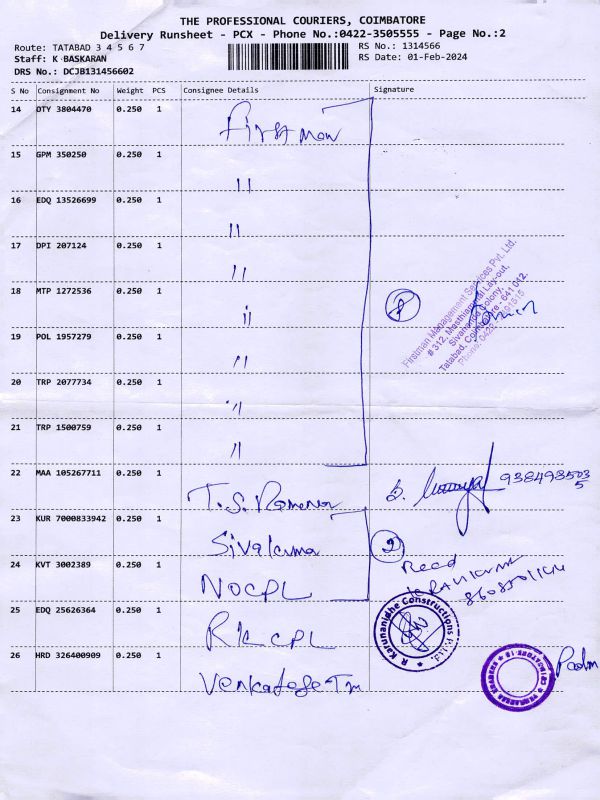 THE PROFESSIONAL COURIERS, COIMBATORE
Delivery Runsheet - PCX - Phone No.:0422-3505555 - Page No.:2
Route: TATABAD 3 4 5 6 7
Staff: K BASKARAN
DRS No.: DCJB131456602
RS No.: 1314566
RS Date: 01-Feb-2024
S No Consignment No Weight PCS Consignee Details Signature
14 OTY 3804470 0.250 1 First man
15 GPM 350250 0.250 1 "
16 EDQ 13526699 0.250 1 "
17 DPI 207124 0.250 1 "
18 MTP 1272536 0.250 1 "
8
Firstman Management Services Pvt. Ltd.
# 312, Layout,
Sivananda Colony,
Tatabad, Coimbatore - 641 012.
Phone: 0422
19 POL 1957279 0.250 1 "
20 TRP 2077734 0.250 1 "
21 TRP 1500759 0.250 1 "
22 MAA 105267711 0.250 1 T.S. Ramena
23 KUR 7000833942 0.250 1 Sivakuma
2
24 KVT 3002389 0.250 1 NOCPL
Recd
25 EDQ 25626364 0.250 1 RKCPL
R. Karunanidhe Constructions P. Ltd.
26 HRD 326400909 0.250 1 Venkatese Tm
Padm